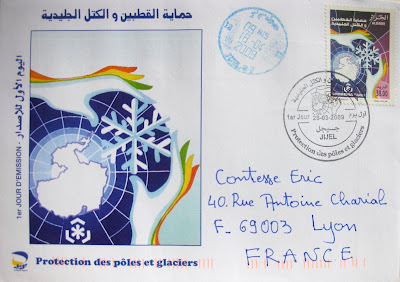 حماية القطبين و الكتل الجليدية
اليوم الأول للإصدار - 1er JOUR D'EMISSION
Protection des pôles et glaciers
الجزائر
حماية القطبين
و الكتل الجليدية
38.00
حماية القطبين و الكتل الجليدية
1er Jour
28-03-2009
جيجل
JIJEL
Protection des pôles et glaciers
Comtesse Eric
40. Rue Antoine Charial
F_69003 Lyon
FRANCE